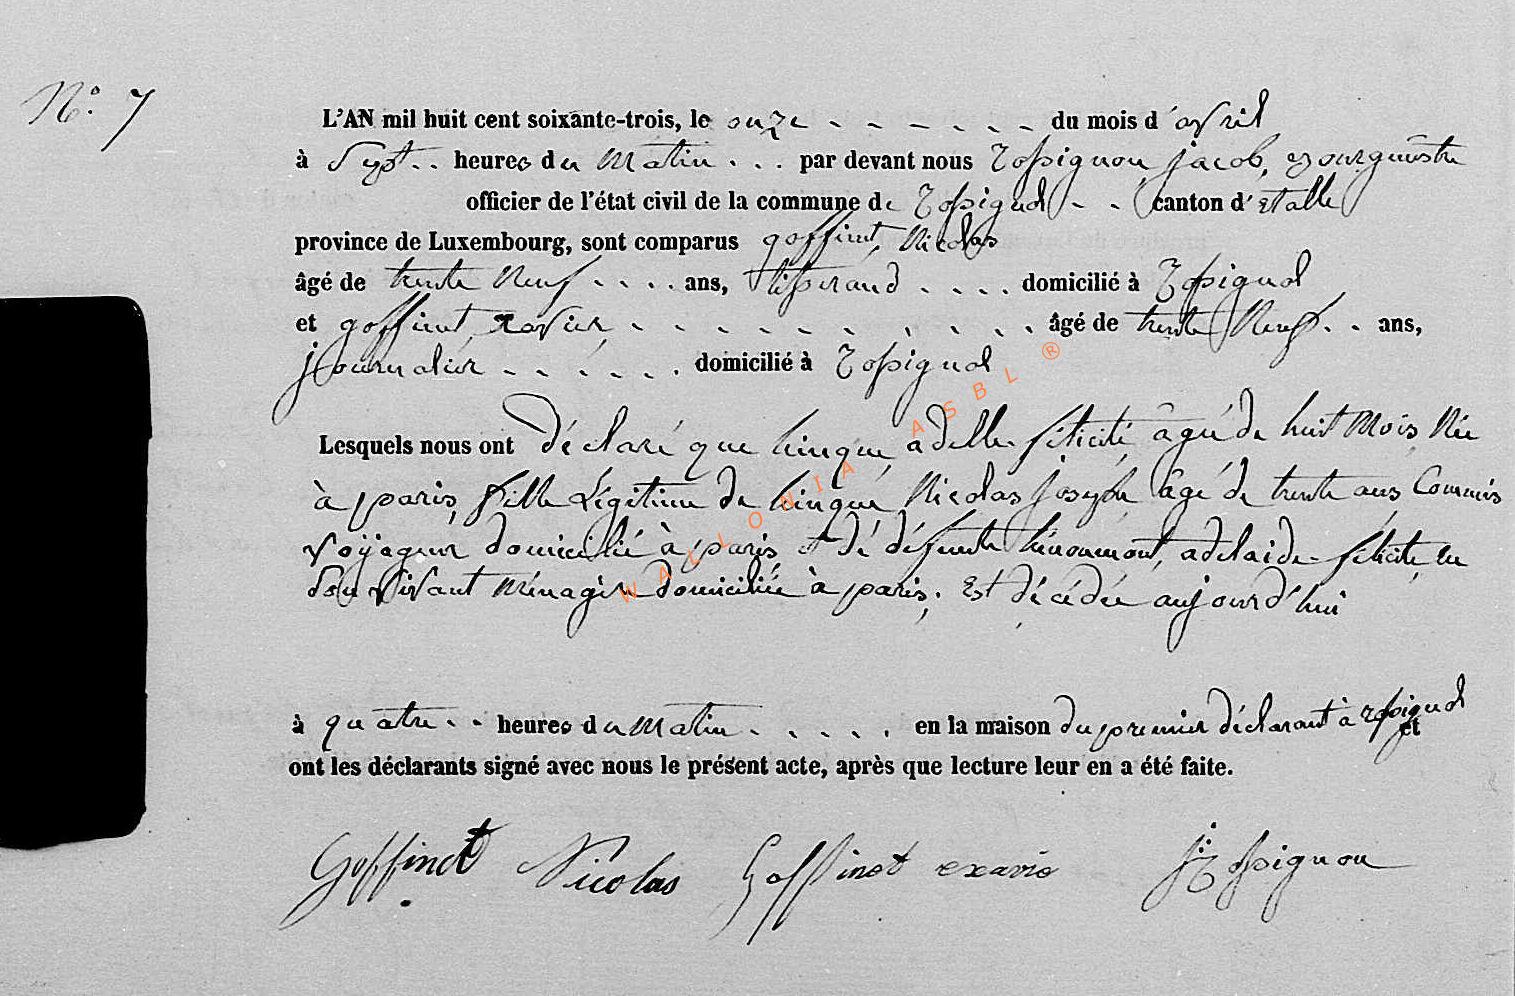 N.º 7
L'AN mil huit cent soixante-trois, le onze - - - - - - - du mois d'avril
à Sept - - heures du Matin - - - par devant nous Rossignon, jacob, Bourguestre
officier de l'état civil de la commune de Rossignol - - canton d'Etalle
province de Luxembourg, sont comparus goffinet, Nicolas
âgé de trente Neuf - - - - ans, tisserand - - - - domicilié à Rossignol
et goffinet xavier - - - - - - - - - - - âgé de trente Neuf - - ans,
journalier - - - - - - domicilié à Rossignol
Lesquels nous ont déclaré que hinque, adelle félicité, âgée de huit Mois, Née
à paris, fille Légitime de hinque, Nicolas joseph, âgé de trente ans Commis
voyageur domicilié à paris et de défunte adelaide félicité, en
son vivant Ménagère domiciliée à paris, Est décédée aujourd'hui
à quatre - - heures du Matin - - - - - en la maison du premier déclarant à Rossignol et
ont les déclarants signé avec nous le présent acte, après que lecture leur en a été faite.
Goffinet Nicolas Goffinet exavie J: Rossignon
WALLONIA ASBL ®